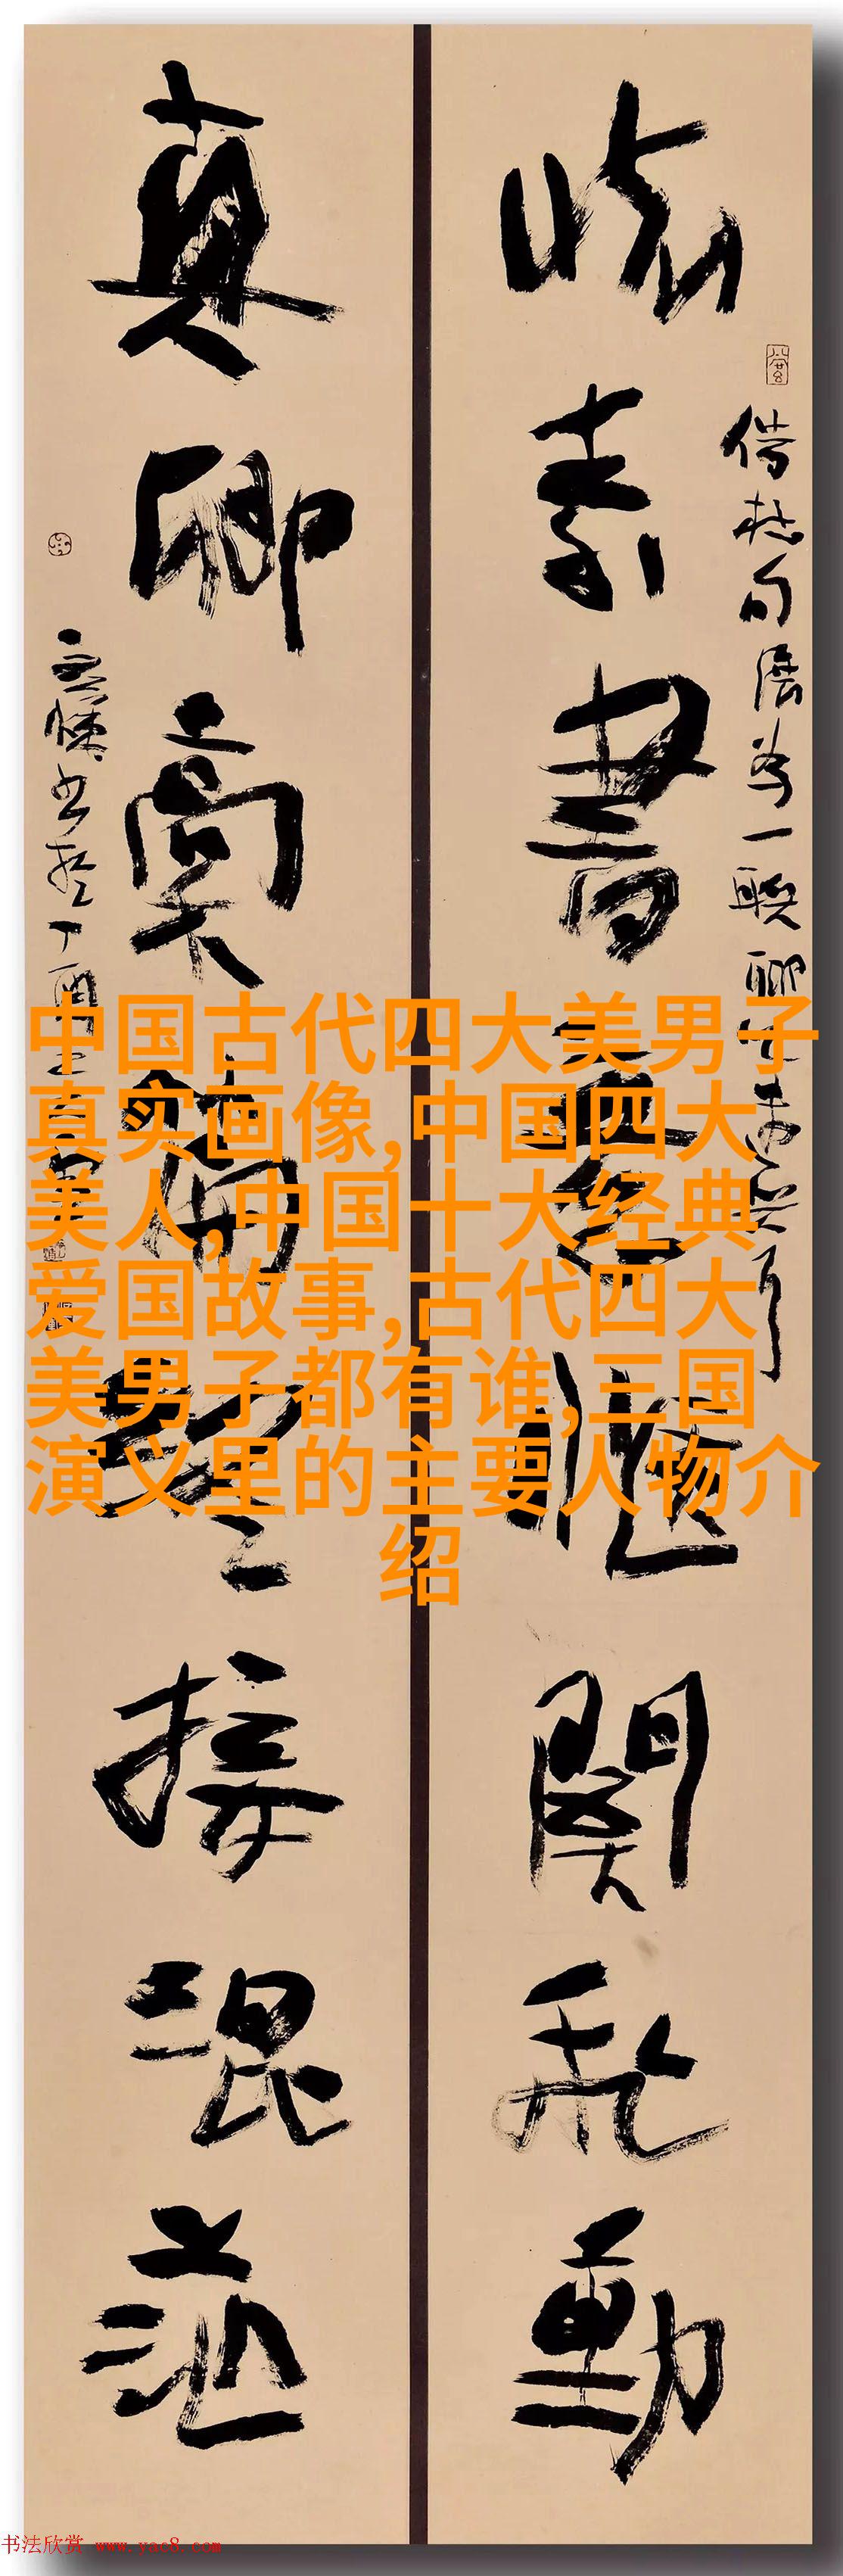 怀素書意惬關飛動
真卿篇終接混茫
借杜句
一聯聊
書於丁酉
中国古代四大美男子
真实画像,中国四大
美人,中国十大经典
爱国故事,古代四大
美男子都有谁,三国
演义里的主要人物介
绍
书法欣赏 www.yac8.com